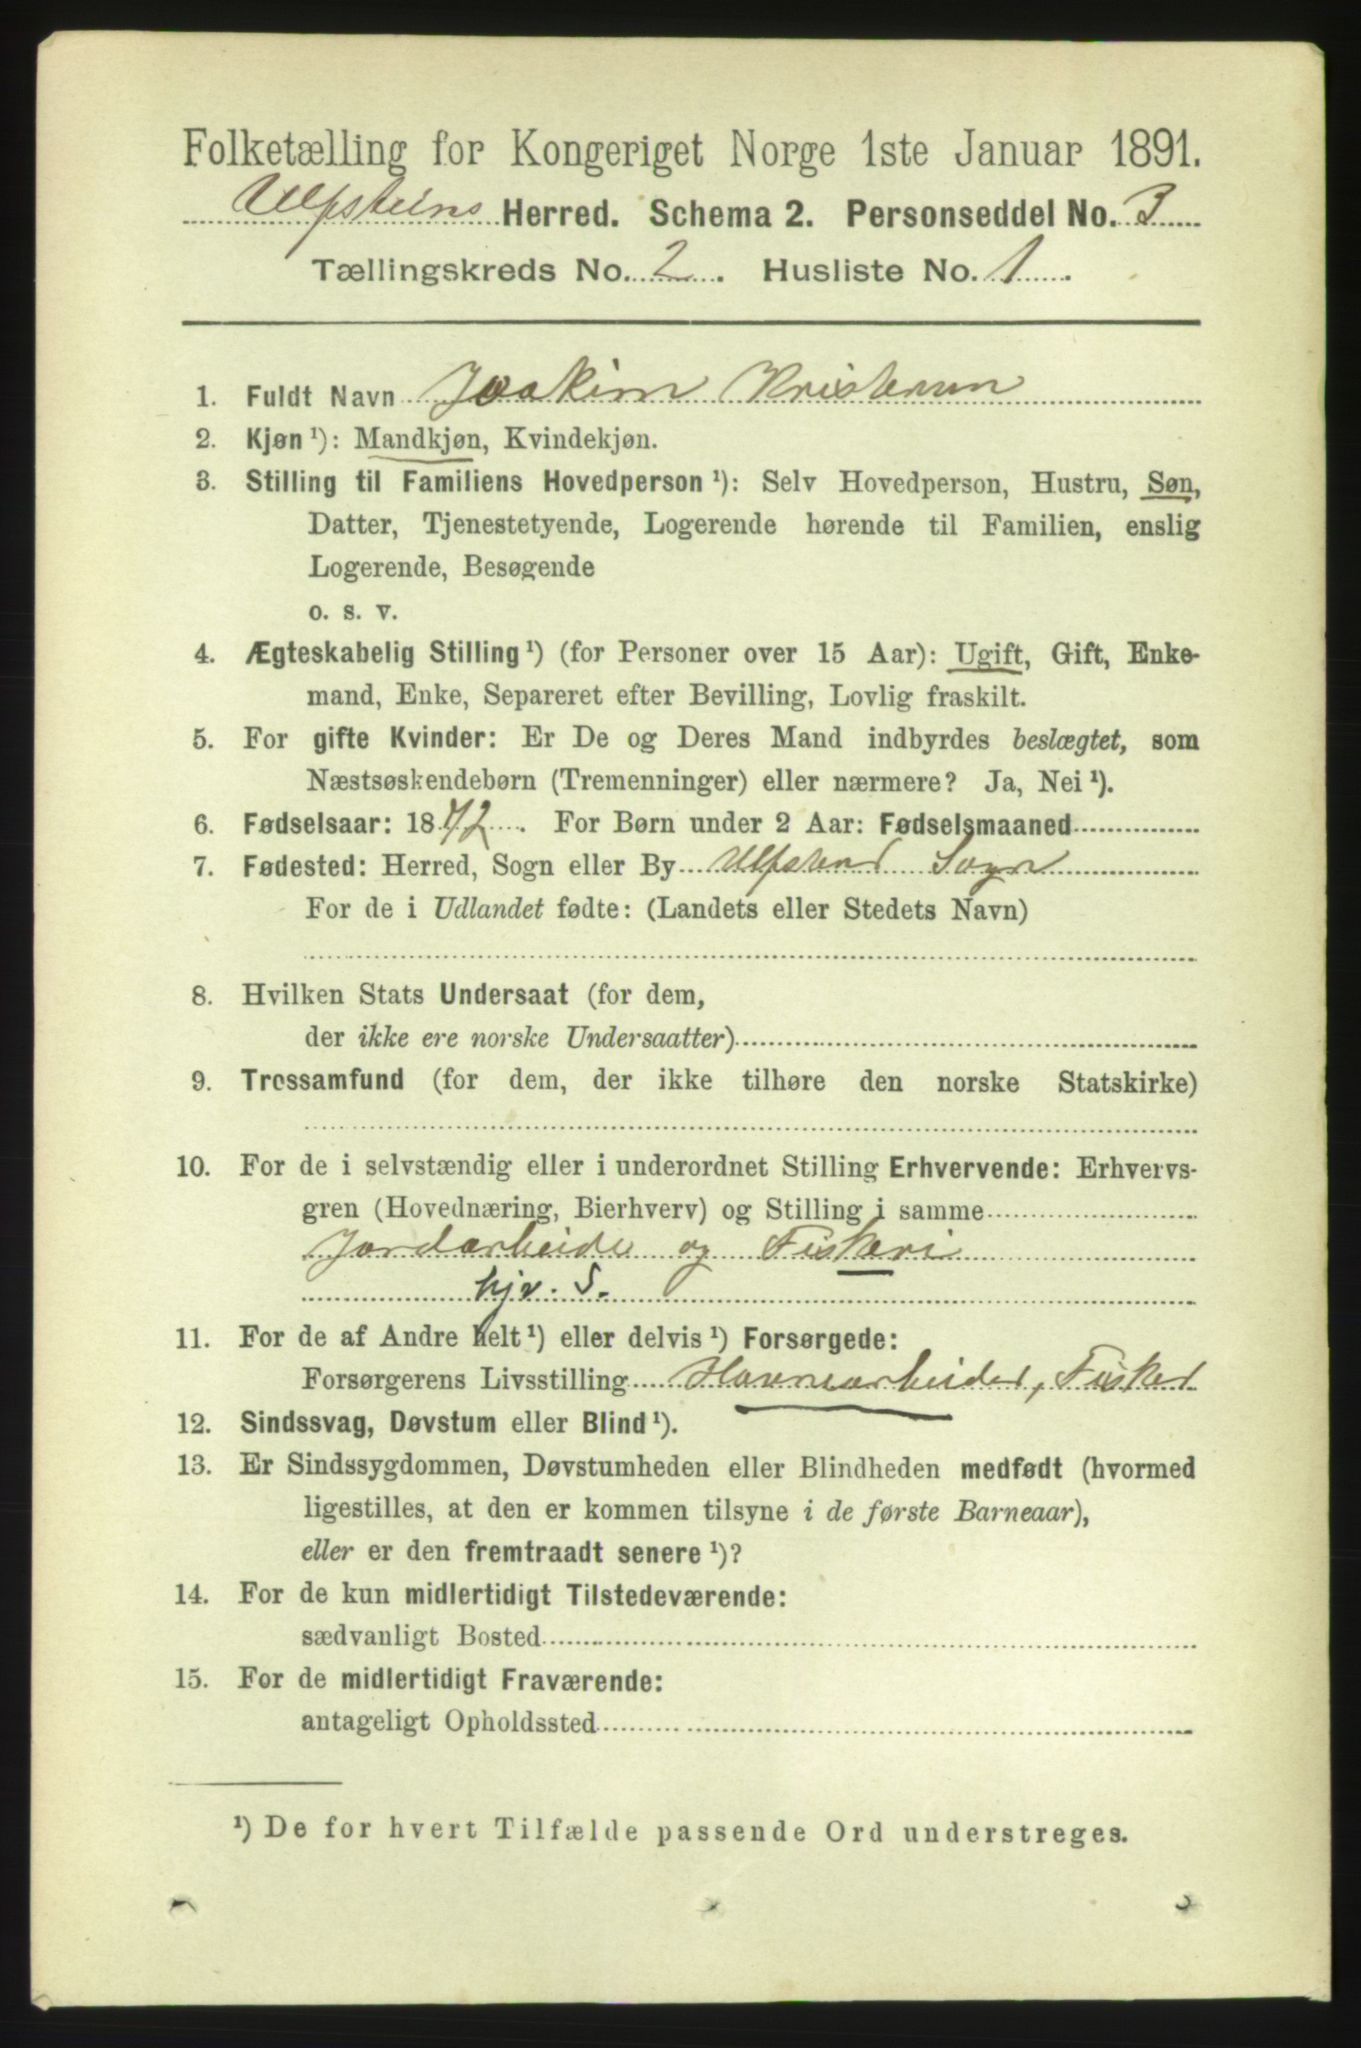 Folketælling for Kongeriget Norge 1ste Januar 1891.
Ulfsteins Herred. Schema 2. Personseddel No. 3
Tællingskreds No. 2. Husliste No. 1.
1. Fuldt Navn Joakim Kristensen
2. Kjøn¹): Mandkjøn, Kvindekjøn.
3. Stilling til Familiens Hovedperson¹): Selv Hovedperson, Hustru, Søn,
Datter, Tjenestetyende, Logerende hørende til Familien, enslig
Logerende, Besøgende
o. s. v.
4. Ægteskabelig Stilling¹) (for Personer over 15 Aar): Ugift, Gift, Enke-
mand, Enke, Separeret efter Bevilling, Lovlig fraskilt.
5. For gifte Kvinder: Er De og Deres Mand indbyrdes beslægtet, som
Næstsøskendebørn (Tremenninger) eller nærmere? Ja, Nei¹).
6. Fødselsaar: 1872. For Børn under 2 Aar: Fødselsmaaned
7. Fødested: Herred, Sogn eller By Ulfsten Sogn
For de i Udlandet fødte: (Landets eller Stedets Navn)
8. Hvilken Stats Undersaat (for dem,
der ikke ere norske Undersaatter)
9. Trossamfund (for dem, der ikke tilhøre den norske Statskirke)
10. For de i selvstændig eller i underordnet Stilling Erhvervende: Erhvervs-
gren (Hovednæring, Bierhverv) og Stilling i samme
Jordarbeide og Fiskeri
hjv. S.
11. For de af Andre helt¹) eller delvis¹) Forsørgede:
Forsørgerens Livsstilling Havnearbeider, Fisker
12. Sindssvag, Døvstum eller Blind¹).
13. Er Sindssygdommen, Døvstumheden eller Blindheden medfødt (hvormed
ligestilles, at den er kommen tilsyne i de første Barneaar),
eller er den fremtraadt senere¹)?
14. For de kun midlertidigt Tilstedeværende:
sædvanligt Bosted
15. For de midlertidigt Fraværende:
antageligt Opholdssted
¹) De for hvert Tilfælde passende Ord understreges.